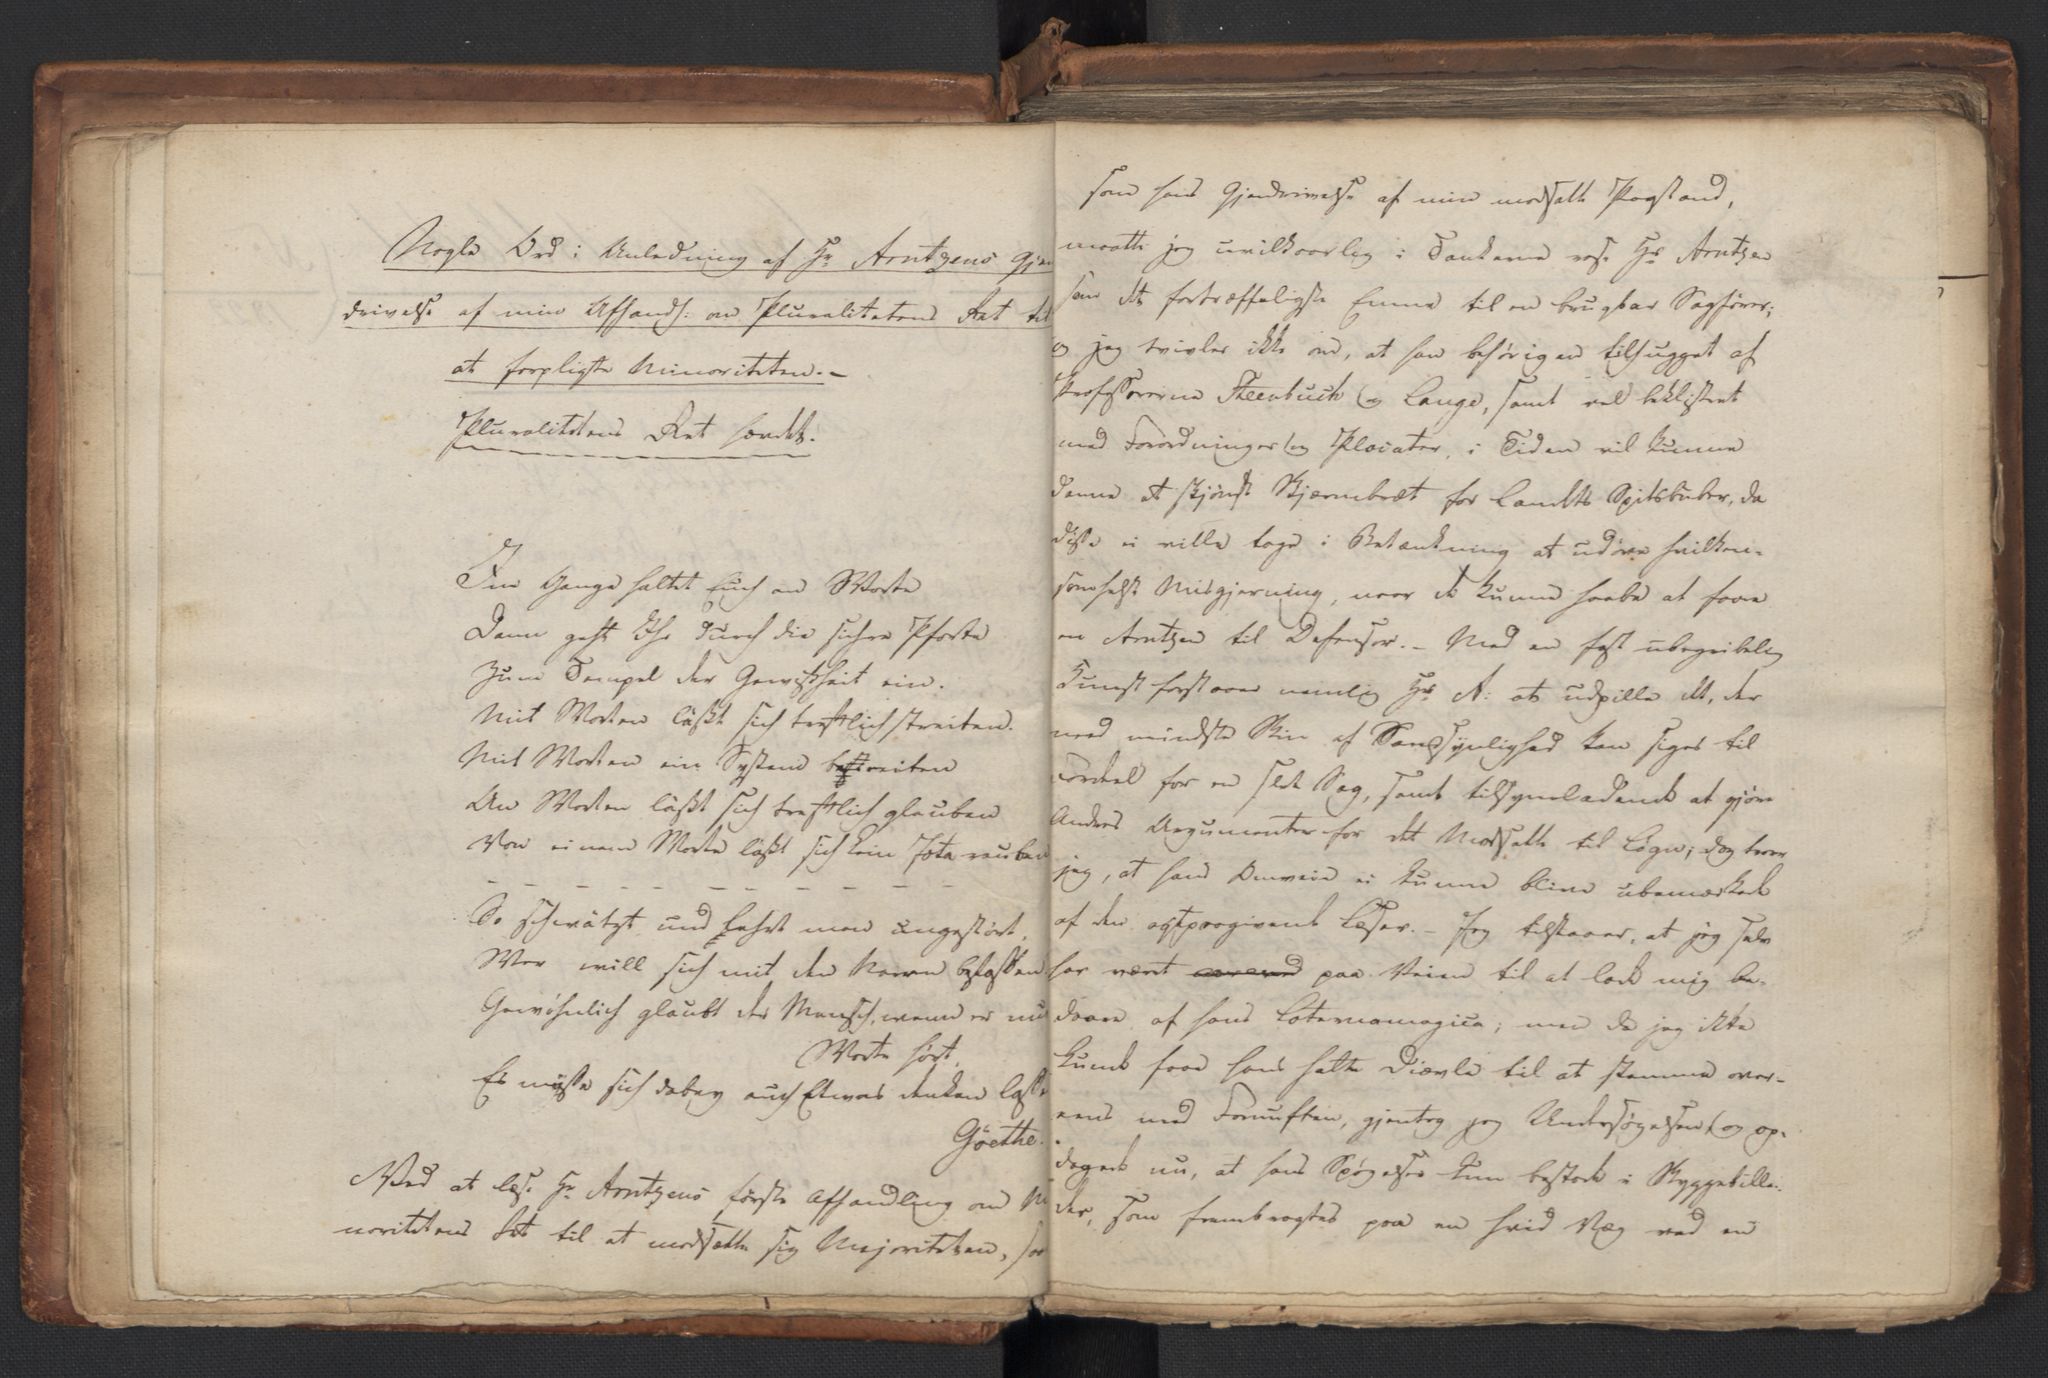 Nogle Ord i Anledning af Hr Arntzens Gjen
drivelse af min Afhandl: om Pluralitetens Ret til
at forpligte Minoriteten. –
Pluralitetens Ret hævdet.
Im Gange haltet Euch an Worte
Dann geht Ihr durch die sichre Pforte
Zum Tempel der Gewißheit ein.
Mit Worten läßt sich trefflich streiten.
Mit Worten ein System bereiten
An Worten läßt sich trefflich glauben
Von einem Worte läßt sich kein Jota rauben
– – – – – – – – – – –
So schwätzt und lehrt man ungestört,
Wer will sich mit den Narrn befassen
Gewöhnlich glaubt der Mensch, wenn er nur
Worte hört,
Es müsse sich dabey auch Etwas denken lasse
Göethe.
Ved at læse Hr Arntzens første Afhandling om Mi
noritetens Ret til at modsætte sig Majoriteten, saa
som hans Gjendrivelse af min modsatte Paastand,
maatte jeg uvilkaarlig i Tankerne rose Hr Arntzen
som det fortræffeligste Emne til en brugbar Sagfører;
og jeg tvivler ikke om, at han behørigen tilhugget af
Professorerne Steenbuch og Lange, samt vel beklistret
med Forordninger og Placater, i Tiden vil kunne
danne et skjønt Skjærmbræt for Landets Spitsbuber, da
disse ei ville tage i Betænkning at udøve hvilken-
somhelst Misgjerning, naar de kunne haabe at faae
en Arntzen til Defensor. – Med en fast ubegribelig
Kunst forstaaer nemlig Hr A: at udpille det, der
med mindste Skin af Sandsynlighed kan siges til
Fordeel for en slet Sag, samt tilsyneladende at gjøre
Andres Argumenter for det Modsatte til Løgn; dog troer
jeg, at hans Umveie ei kunne blive ubemærkede
af den agtpaagivende Læser. – Jeg tilstaaer, at jeg selv
har været paa Veien til at lade mig be-
daare af hans Laternamagica; men da jeg ikke
kunde faae hans halte Diævle til at stemme over-
eens med Fornuften, gjentog jeg Undersøgelsen og op-
dagede nu, at hans Spøgelser kun bestode i Skyggebille-
der, som frembragtes paa en hvid Væg ved en